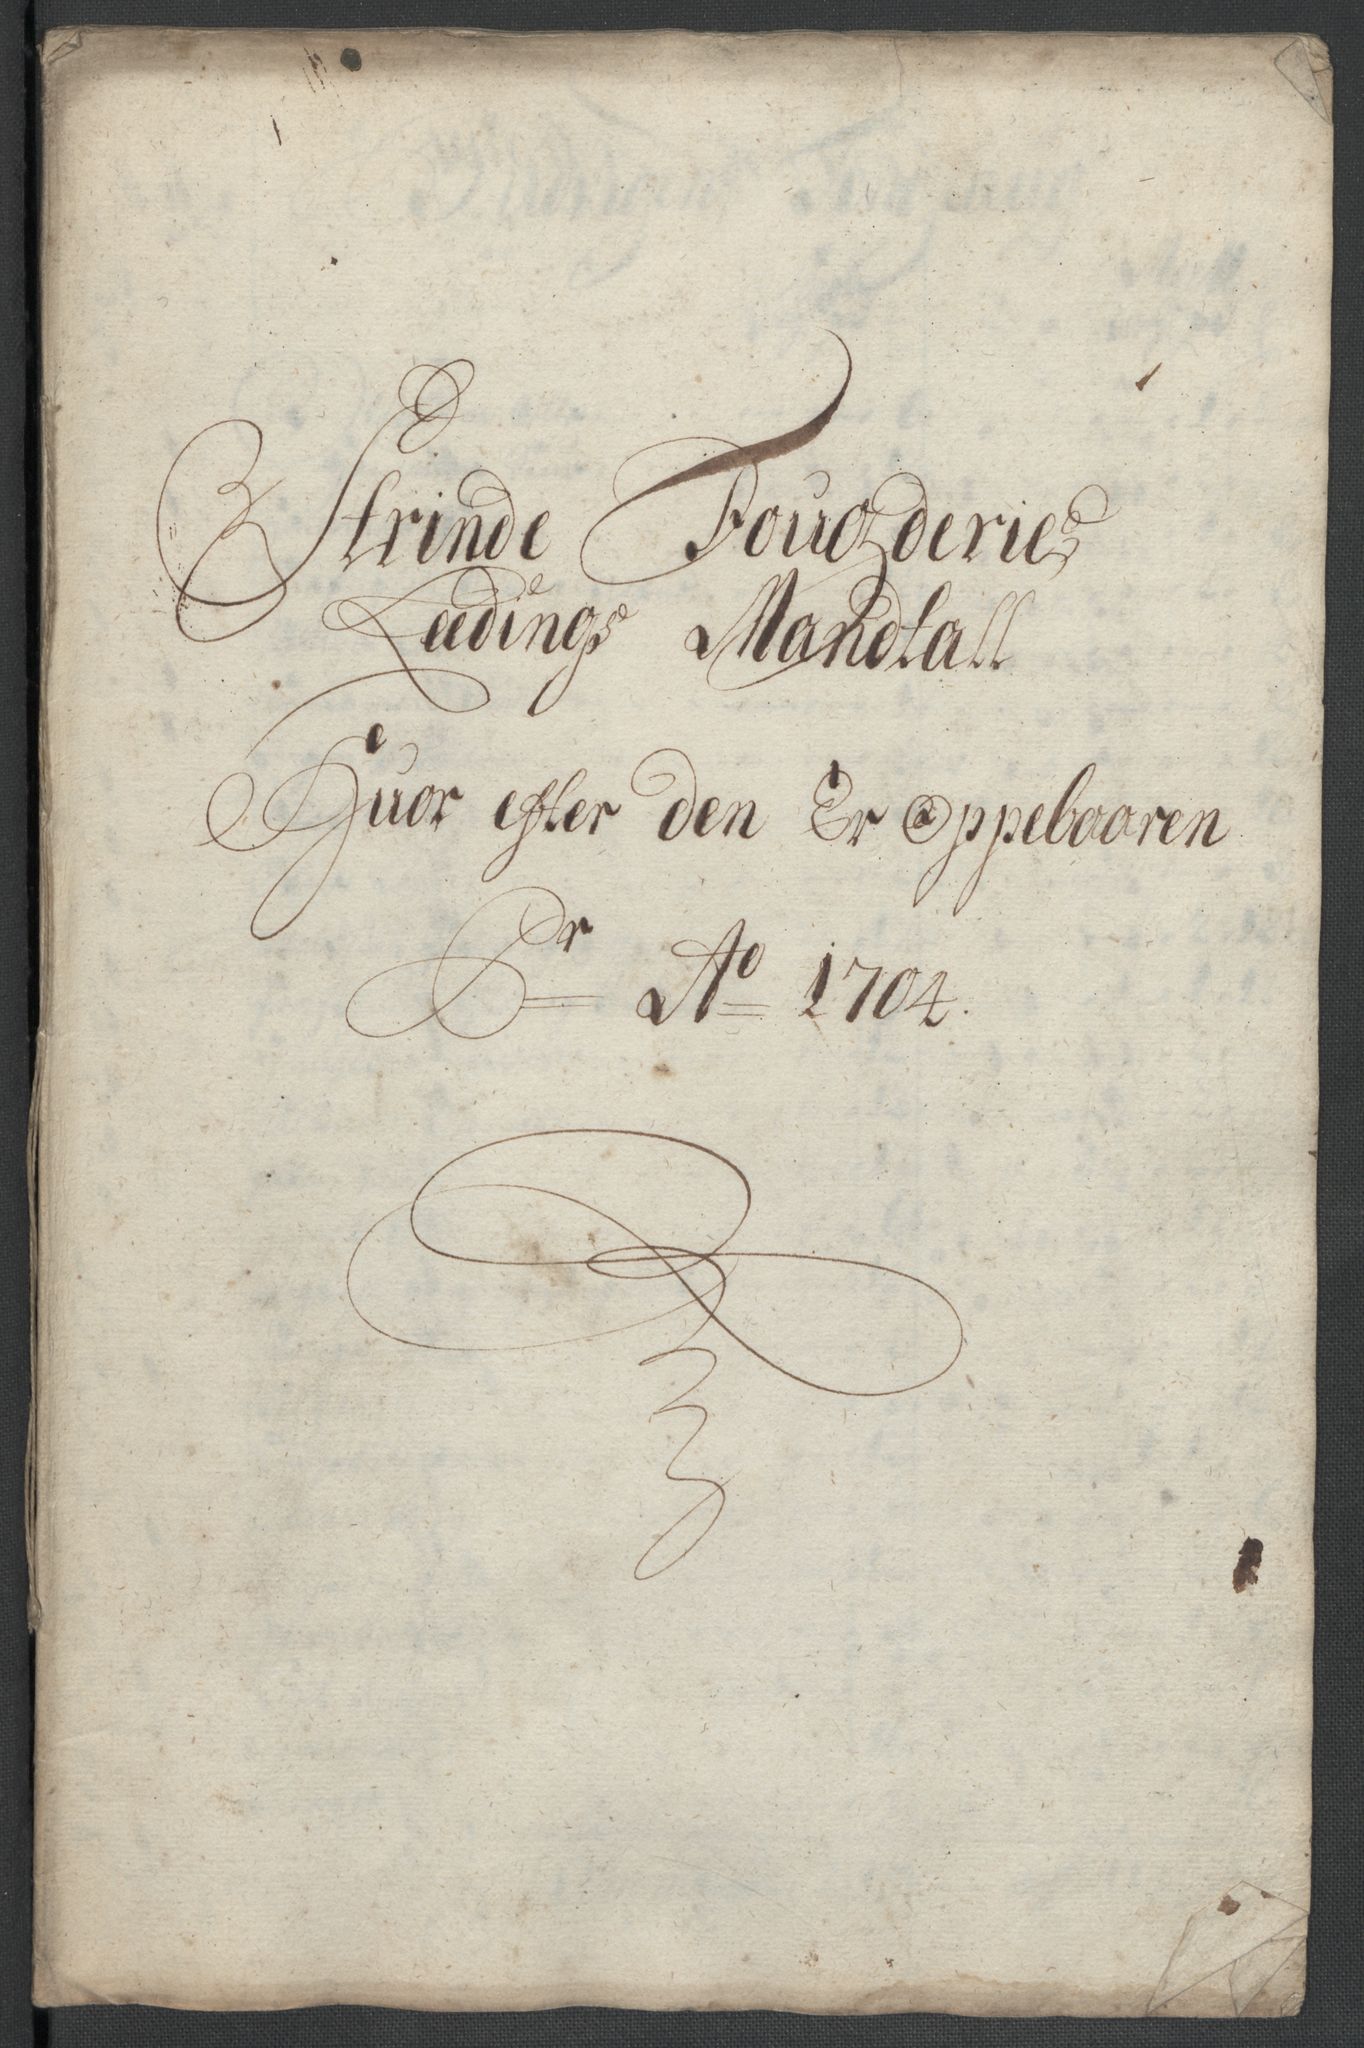 Strinde Fougderies
Leedings Mandtall
Huor efter den Er Oppebaaren
Pr Ao 1704.